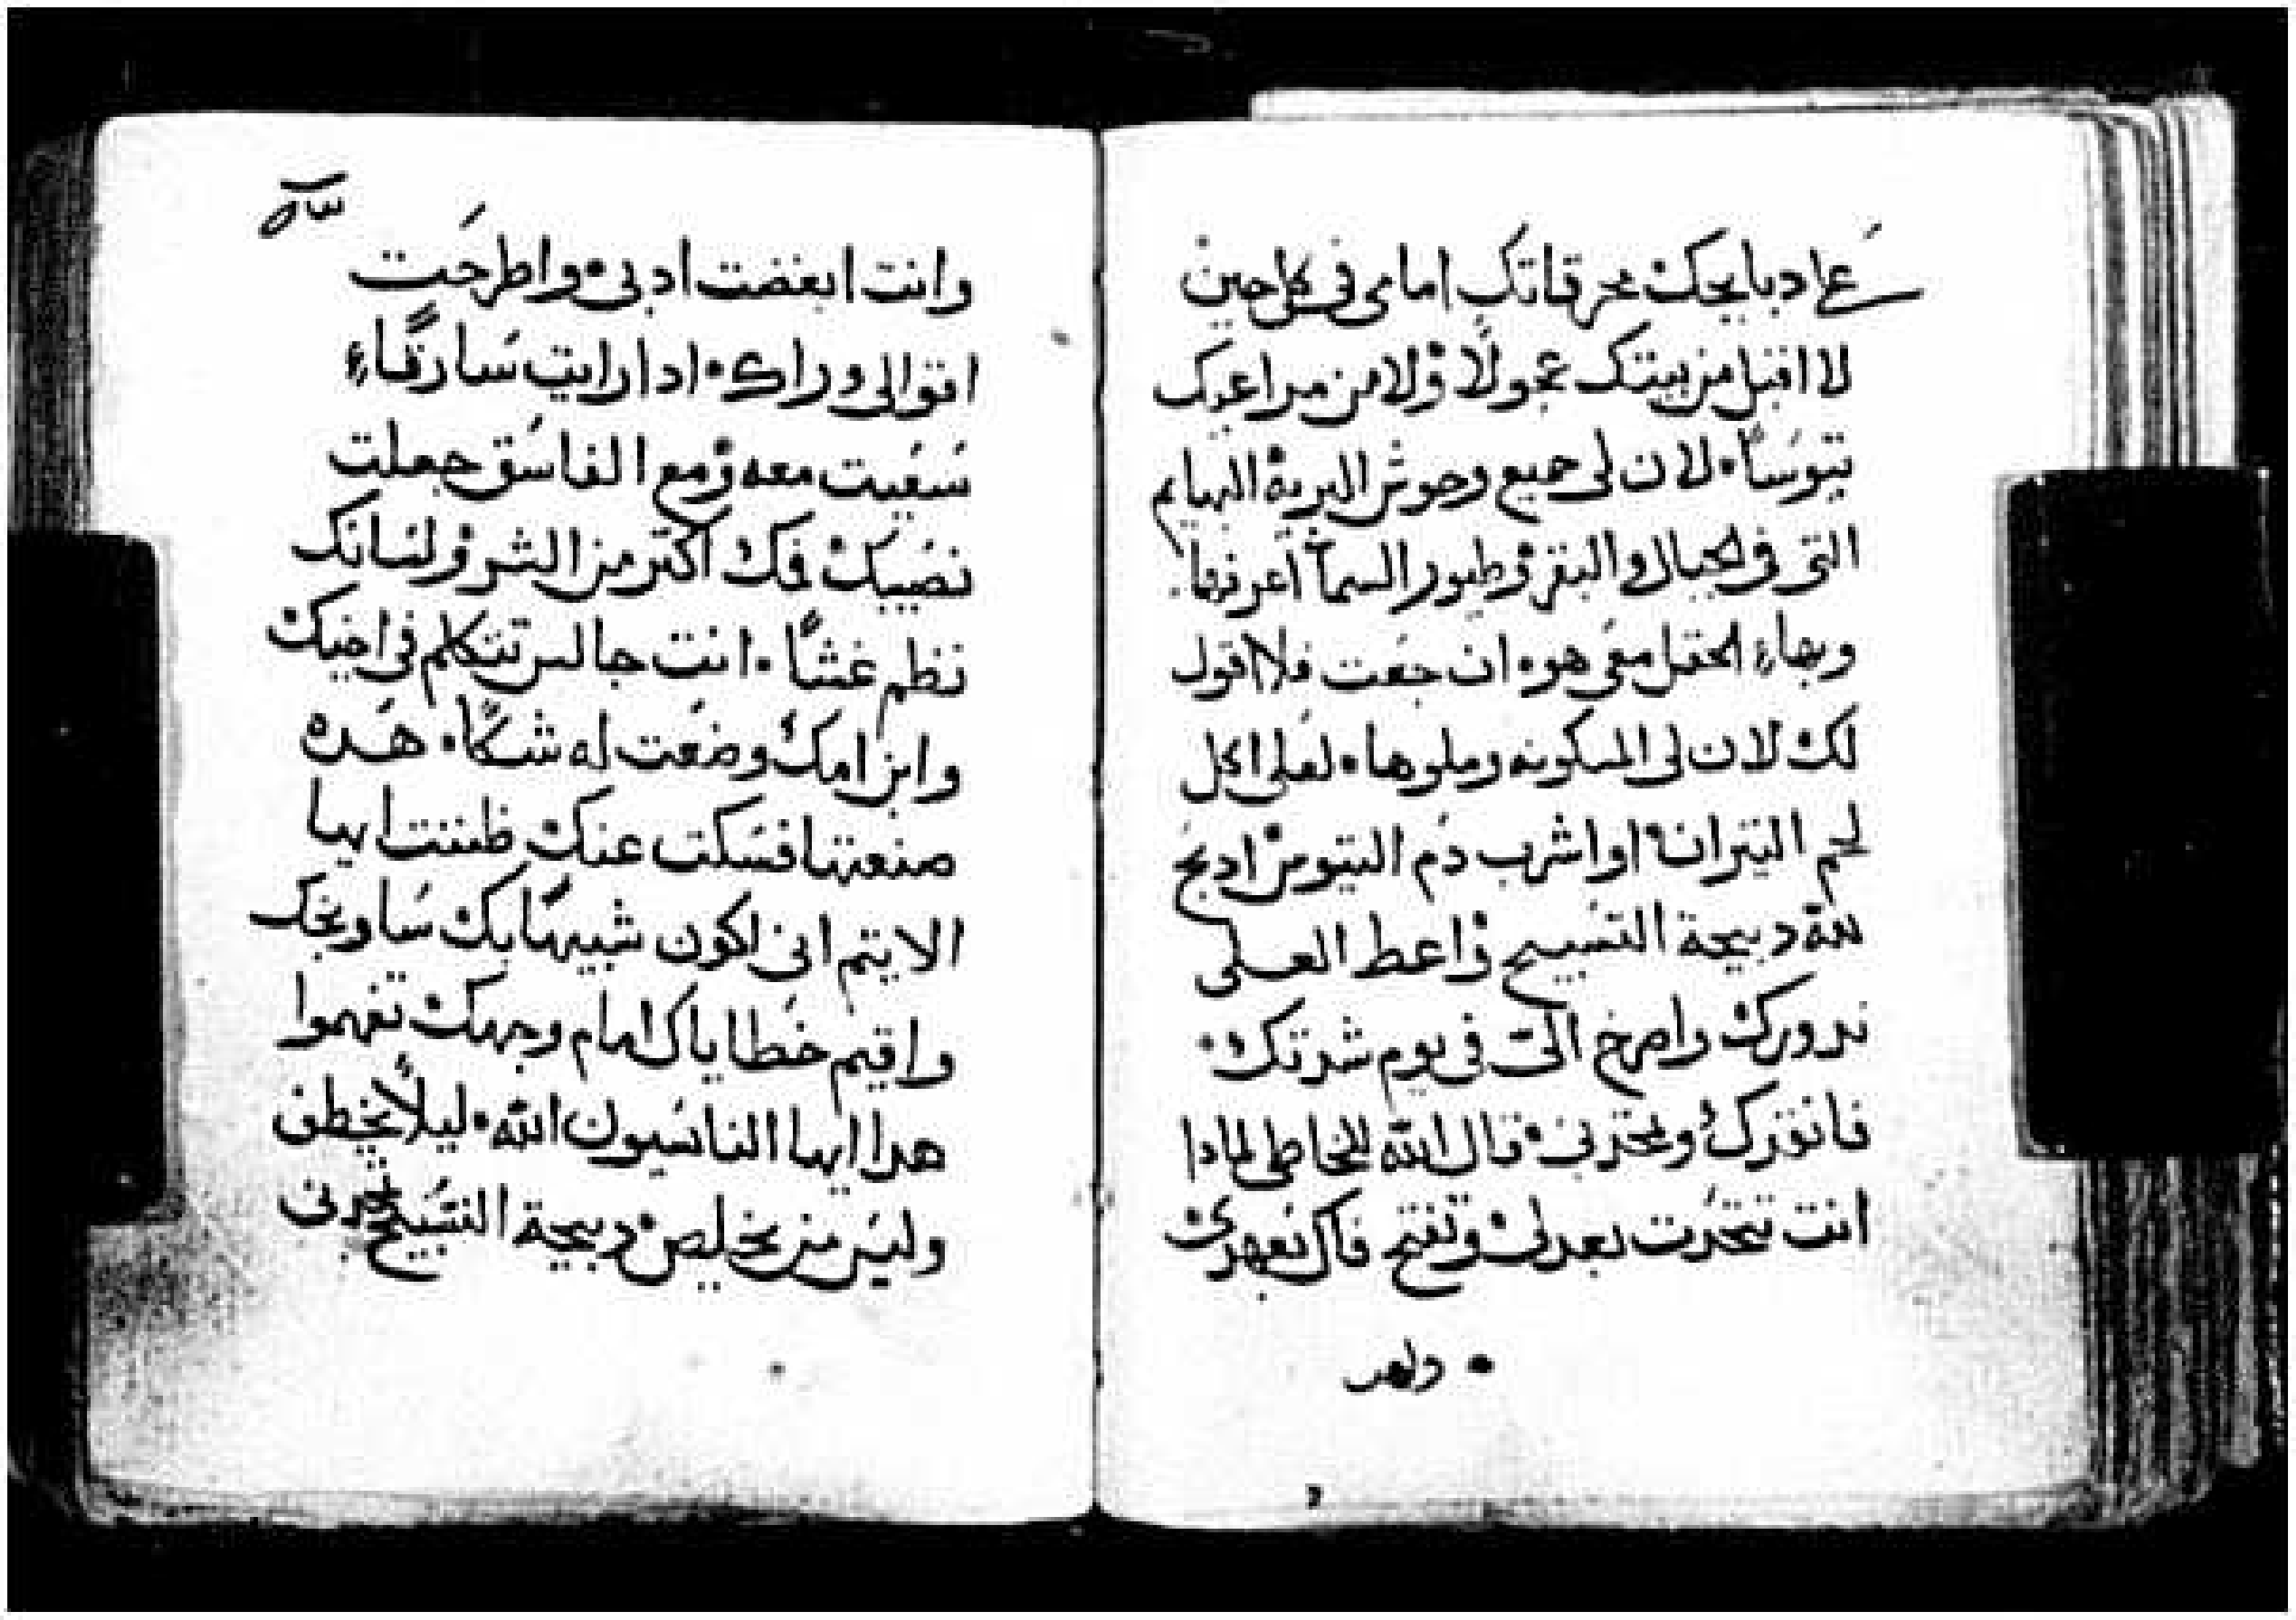 على دبايحك محرقاتك امامى فى كل حين
لا اقبل من بيتك عجولًا ولا من مراعيك
تيوسًا. لان لى جميع وحوش البرية البهايم
التى فى الجبال والبقر وطيور السمآ اعرفها.
وبهاء الحقل معى هو. ان جعت فلا اقول
لك لان لى المسكونه وملوها. لعلى اكل
لحم التيران او اشرب دم التيوس ادبح
لله دبيحة التسبيح واعط العلى
ندورك واصرخ الىّ فى يوم شدتك.
فانقذك وتمجدنى. قال الله للخاطى لمادا
انت تتحدت بعدلى وتفتح فاك بعهدى
. ولقد
وانت ابغضت ادبى. واطرحت
اقوالى وراك. ادا رايت سارقًاء
سعيت معه ومع الفاسق جعلت
نصيبك فك اكتر من الشر ولسانك
نظم غشًا. انت جالس تتكلم فى اخيك
وابن امك وضعت له شكًا. هده
صنعتها فسكت عنك ظننت ايها
الايتم انى اكون شبيهًا بك ساوبخك
واقيم خطاياك امام وجهك تفهموا
هدا ايها الناسيون الله. ليلًا يخطف
وليس من يخلص. دبيحة التسبيح تمجدنى